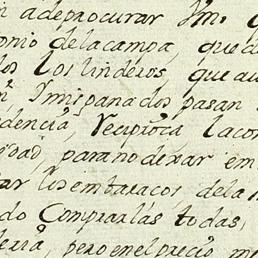 adeprocurar Ym.
onio delacampa, que d
los los linderos, que au
Ympana dos pasan
dencia, Reciproca lacon
para no dexar em
ar los embaracos, dela
do Comprarlas todas,
pero enel precio